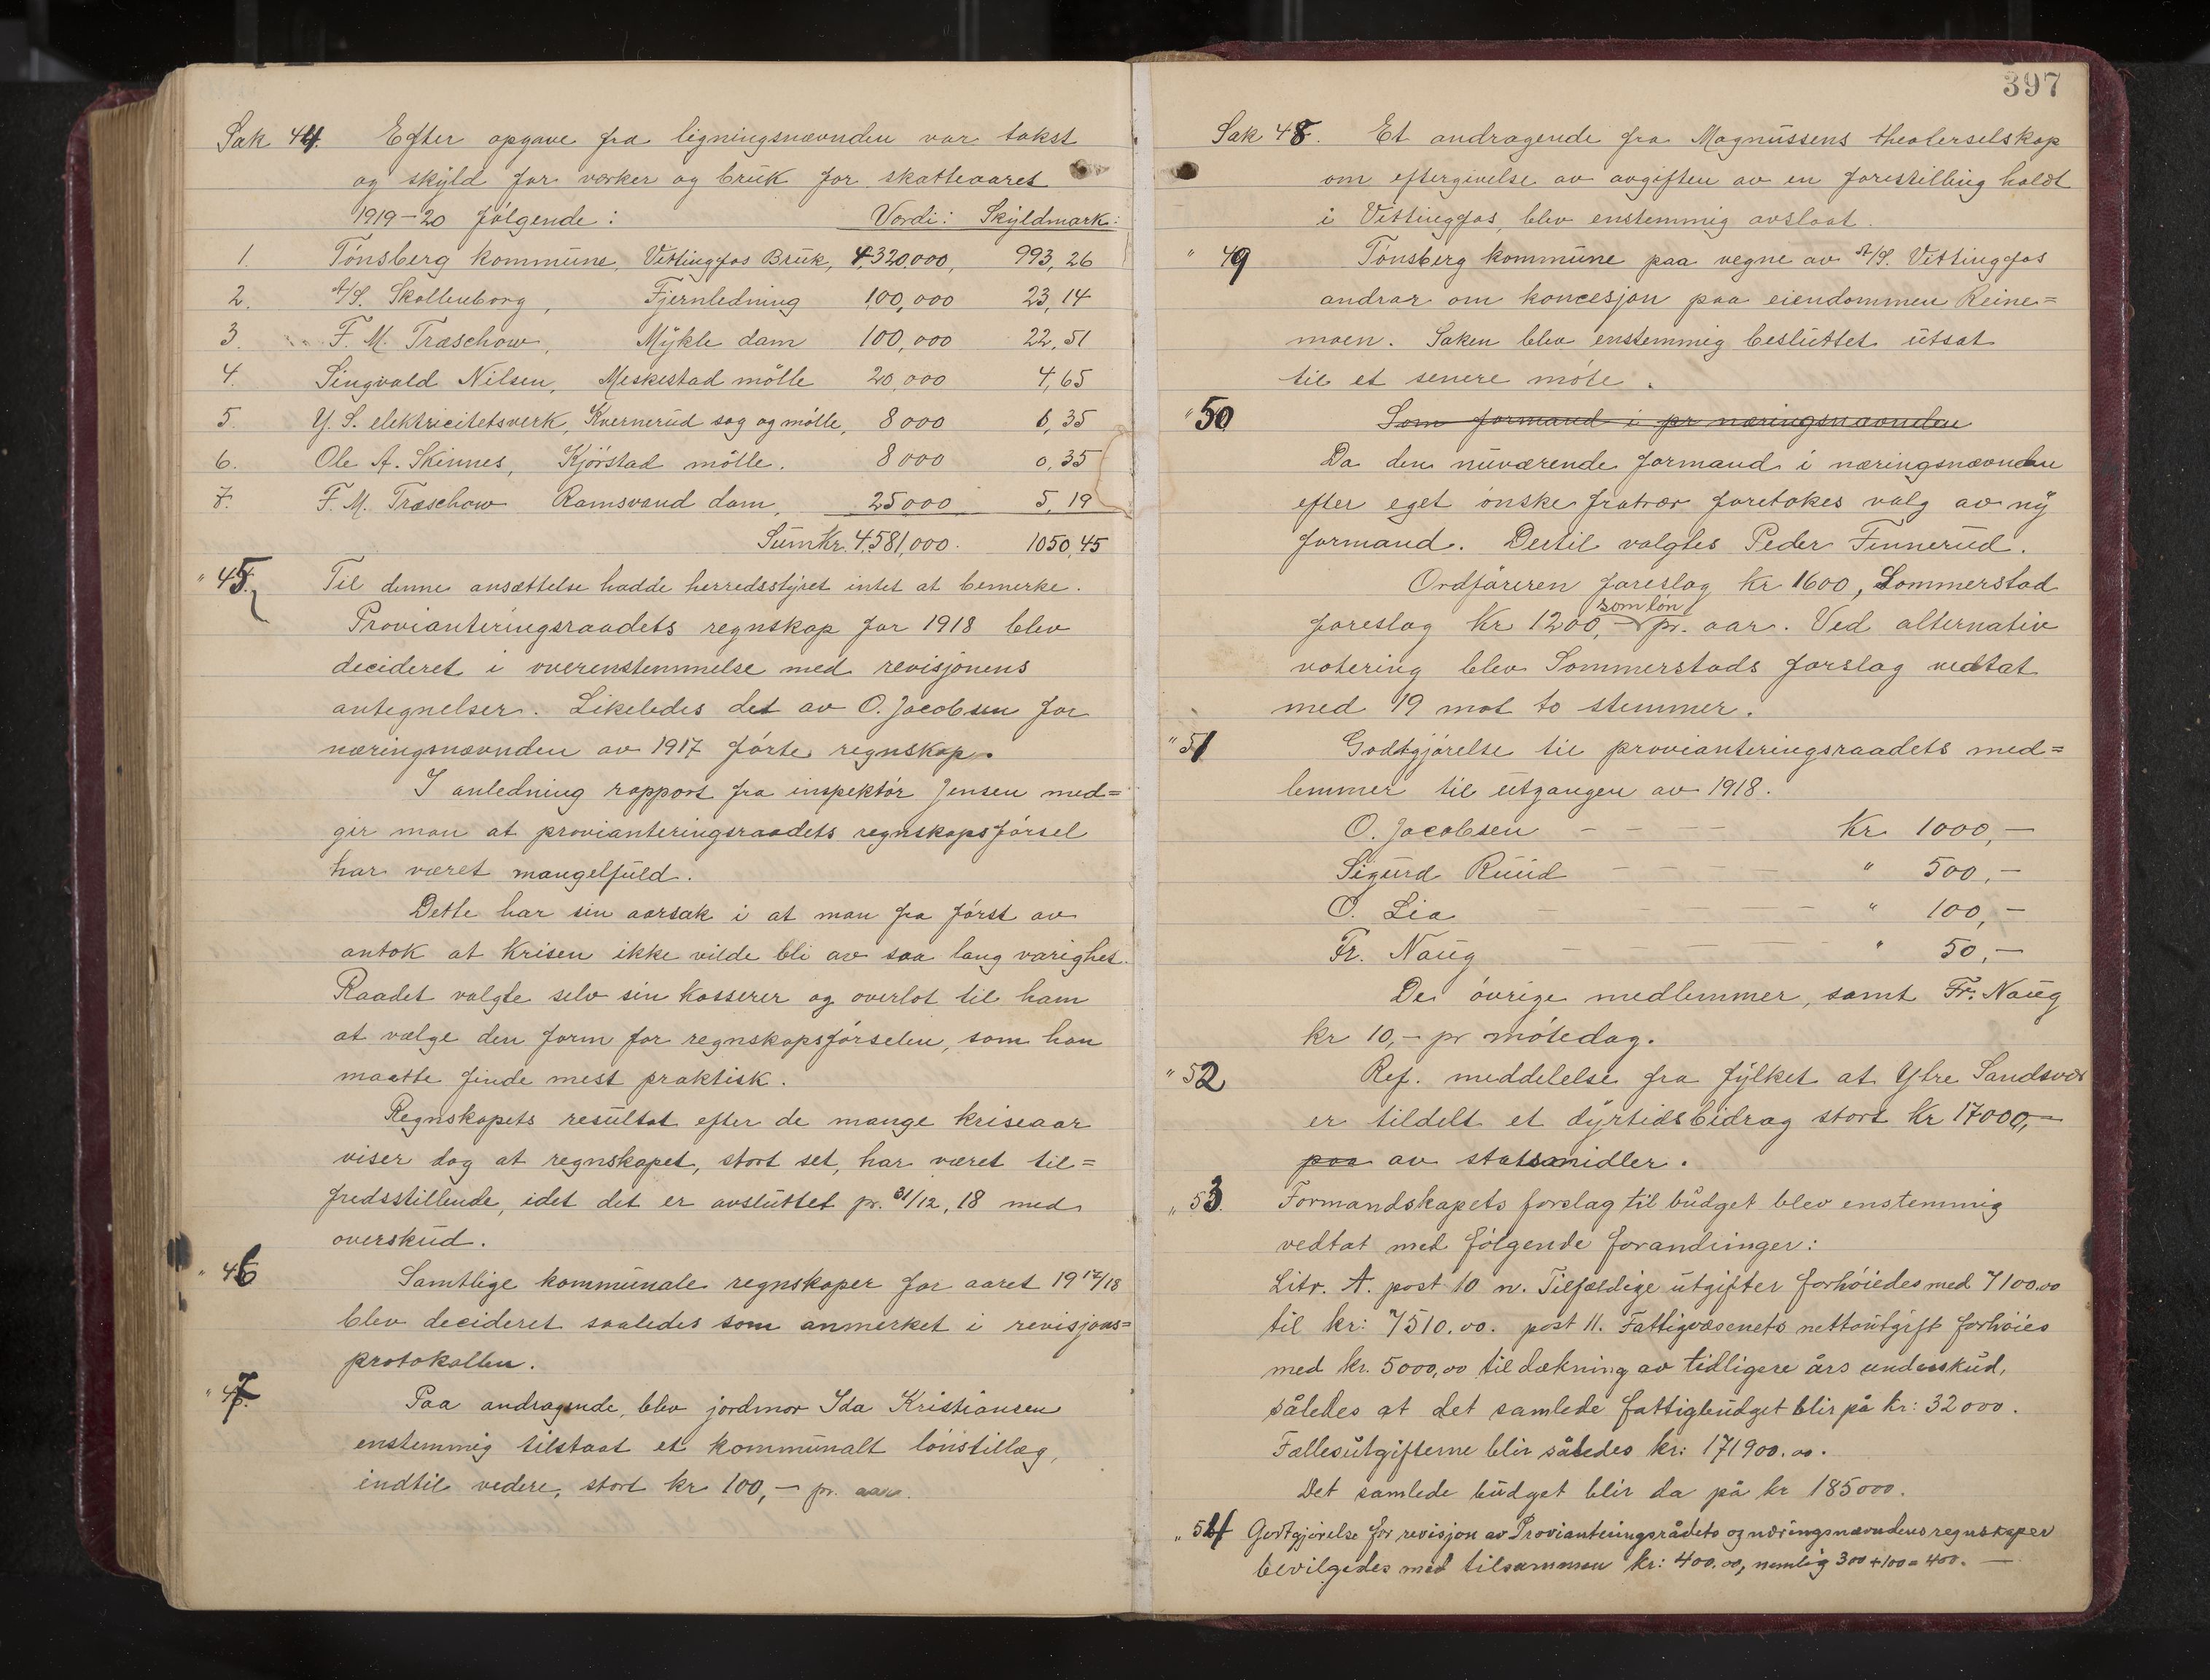 Sak 44. Efter opgave fra ligningsnævnden var takst
og skyld for verker og bruk for skatteaaret
1919–20 følgende: Verdi: Skyldmark:
1. Tønsberg kommune, Vittingfos Bruk, 4,320,000, 993,26
2. A/S. Skollenborg, Fjernledning 100,000 23,14
3. F. M. Træschow, Mykle dam 100,000 22,51
4. Singvald Nilsen, Meskestad mølle 20,000 4,65
5. Y. S. elektricitetsverk, Kvernerud sag og mølle, 8000 0,35
6. Ole A. Skinnes, Kjørstad mølle. 8000 0,35
7. F. M. Træschow Ramsvand dam, 25000 5,19
Sum Kr. 4,581,000. 1050,45
" 45. Til denne ansættelse hadde herredsstyret intet at bemerke.
Provianteringsraadets regnskap for 1918 blev
decideret i overenstemmelse med revisjonens
antegnelser. Likeledes det av O. Jacobsen for
næringsnævnden av 1917 førte regnskap.
I anledning rapport fra inspektør Jensen med=
gir man at provianteringsraadets regnskapsførsel
har været mangelfuld.
Dette har sin aarsak i at man fra først av
antok at krisen ikke vilde bli av saa lang varighet.
Raadet valgte selv sin kasserer og overlot til ham
at vælge den form for regnskapsførselen, som han
maatte finde mest praktisk.
Regnskapets resultat efter de mange kriseaar
viser dog at regnskapet, stort set, har været til=
fredsstillende, idet det er avsluttet pr. 31/12, 18 med
overskud.
" 46 Samtlige kommunale regnskaper for aaret 1917/18
blev decideret saaledes som anmerket i revisjons=
protokollen.
" 47. Paa andragende, blev jordmor Ida Kristiansen
enstemmig tilstaat et kommunalt lønstillæg,
indtil vedere, stort kr 100,– pr. aar.
397
Sak 48. Et andragende fra Magnussens theaterselskap
om eftergivelse av avgiften av en forestilling holdt
i Vittingfos, blev enstemmig avslaat.
" 49 Tønsberg kommune paa vegne av A/S. Vittingfos
andrar om koncesjon paa eiendommen Reine=
moen. Saken blev enstemmig besluttet utsat
til et senere møte.
" 50 Som formand i pr næringsnævnden
Da den nuværende formand i næringsnævnden
efter eget ønske fratrær foretakes valg av ny
formand. Dertil valgtes Peder Finnerud.
Ordføreren foreslog kr 1600, Sommerstad
som løn
foreslog kr 1200,– pr. aar. Ved alternativ
votering blev Sommerstads forslag vedtat
med 19 mot to stemmer.
" 51 Godtgjørelse til provianteringsraadets med=
lemmer til utgangen av 1918.
O. Jacobsen – – – Kr 1000,–
Sigurd Ruud – – – – " 500,–
O. Lia – – – – " 100,–
Fr. Naug – – – – – " 50,–
De øvrige medlemmer, samt Fr. Naug
kr 10,– pr møtedag.
" 52 Ref. meddelelse fra fylket at Ytre Sandsvær
er tildelt et dyrtidsbidrag stort kr 17000,–
paa av statsmidler.
" 53. Formandskapets forslag til budget blev enstemmig
vedtat med følgende forandringer:
Litr. A. post 10 n. Tilfældige utgifter forhøiedes med 7100.00
til kr: 7510.00. post 11. Fattigvæsenets nettoutgift forhøies
med kr. 5000,00 til dækning av tidligere års underskud,
således at det samlede fattigbudget blir på kr: 32000.
Fællesutgifterne blir således kr: 171900.00.
Det samlede budget blir da på kr 185000.
" 54 Godtgjørelse for revisjon av Provianteringsrådets og næringsnævndens regnskaper
bevilgedes med tilsammen kr: 400.00, nemlig 300 + 100 = 400. —